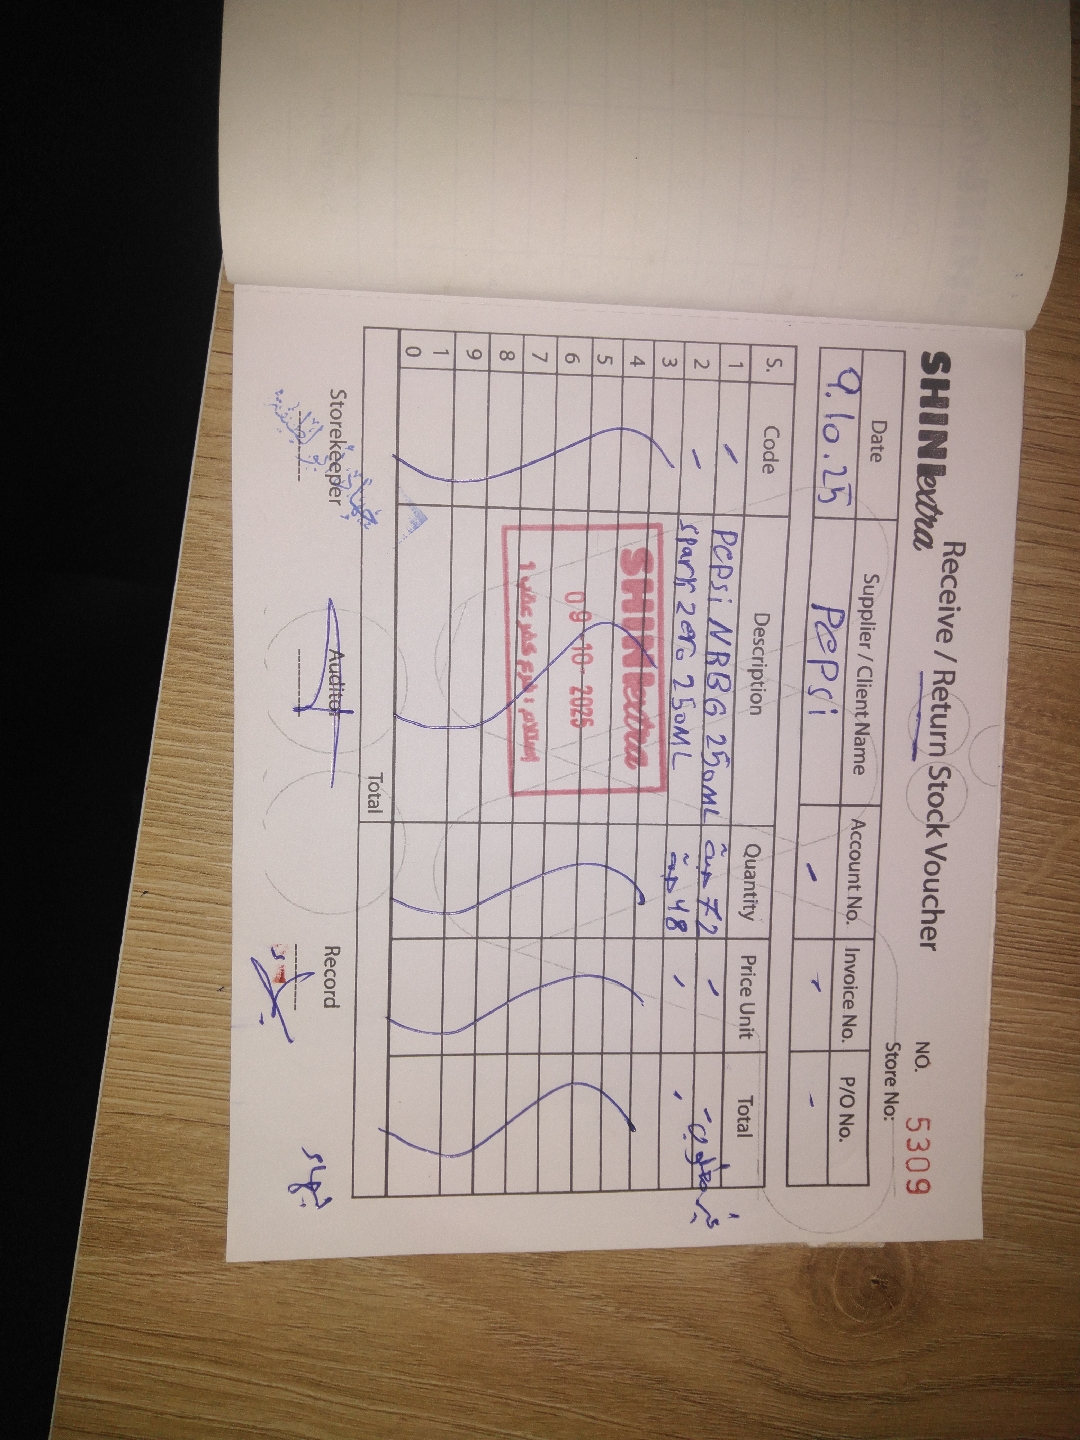 SHINextra
Receive / Return Stock Voucher
NO. 5309
Store No:
Date Supplier / Client Name Account No. Invoice No. P/O No.
9.10.25 Pepsi - - -
S. Code Description Quantity Price Unit Total
1 - Pepsi NRBG 250ML 72 - -
2 - Spark zero 250ML 48 - -
3
4
5
6
7
8
9
1
0
SHINextra
09-10-2025
استلام فرع كفر عقب 1
Total
Storekeeper Auditor Record